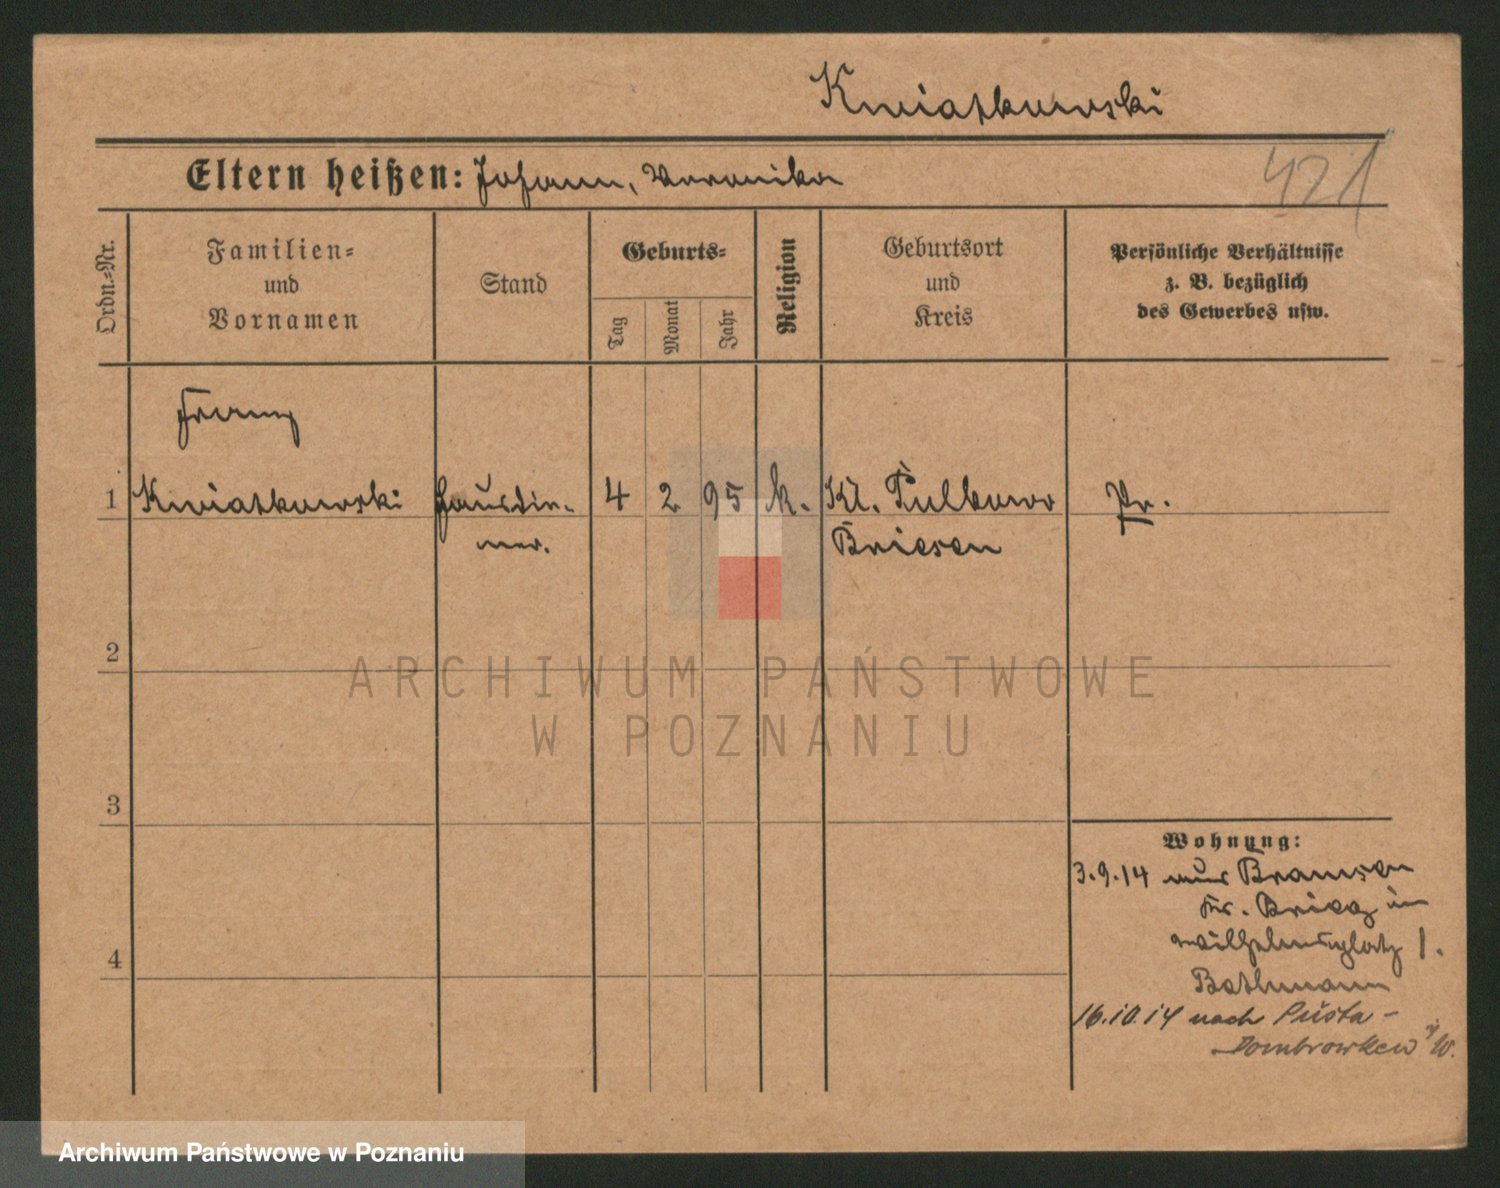 Kwiatkowski
Eltern heißen: Johann, Veronika
421
Ordn.=Nr.
Familien=
und
Vornamen
Stand
Geburts=
Tag
Monat
Jahr
Religion
Geburtsort
und
Kreis
Persönliche Verhältnisse
z. B. bezüglich
des Gewerbes usw.
Franz
1 Kwiatkowski Hausdie- 4 2 95 k. Kl. Pulkowo Pr.
ner. Briesen
2
3
4
Wohnung:
3.9.14 aus
Kr. in
Wilhelmsplatz 1.
Bathmann
16.10.14 nach Pusta-
Dombrowken i/W.
ARCHIWUM PAŃSTWOWE
W POZNANIU
Archiwum Państwowe w Poznaniu